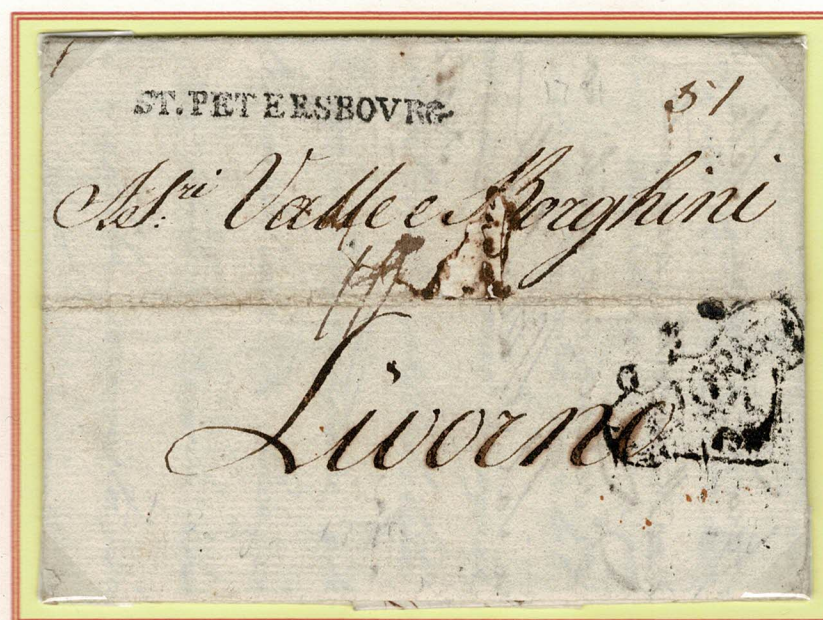 ST. PETERSBOVRG
51
Valle e Borghini
Livorno